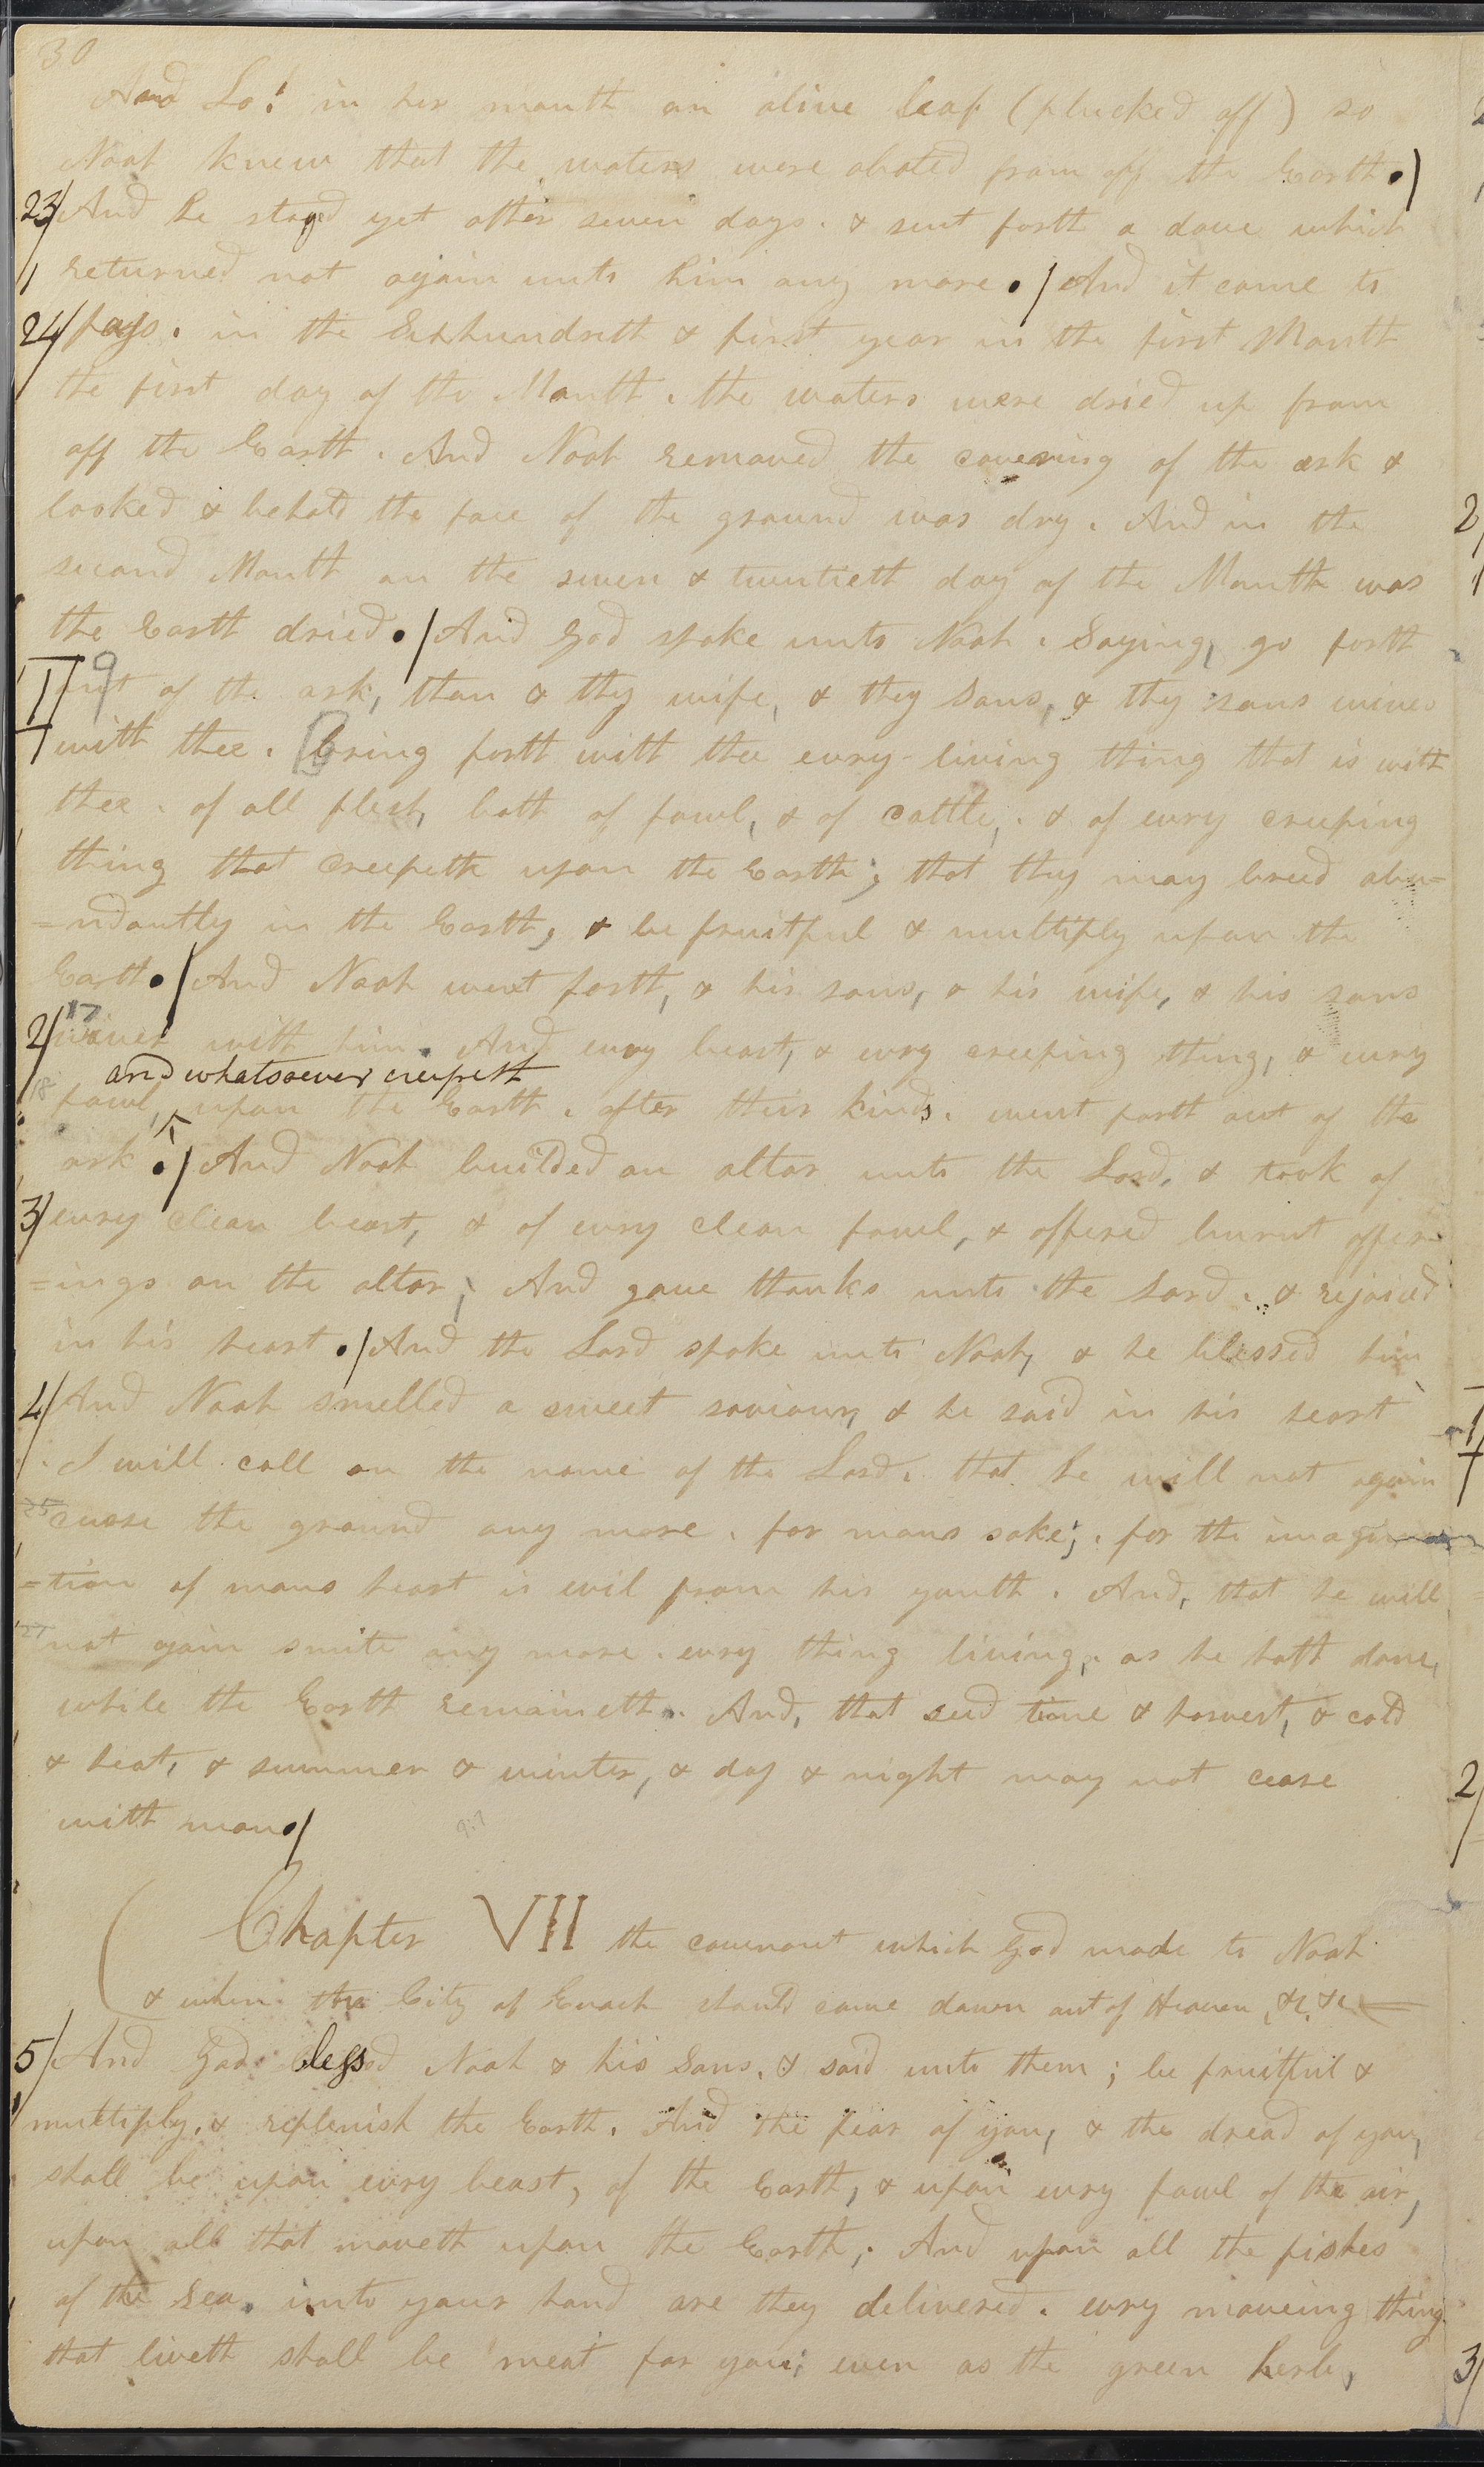 30
And Lo! in her mouth an olive leaf (plucked off) so
Noah knew that the waters were abated from off the Earth./
23/ And he stayed yet other seven days. & sent forth a dove which
returned not again unto him any more./ And it came to
24/ pass. in the Sixhundreth & first year in the first Month
the first day of the Month. the waters were dried up from
off the Earth. And Noah removed the covering of the ark &
looked & behold the face of the ground was dry. And in the
second Month on the seven & twentieth day of the Month was
the Earth dried./ And God spoke unto Noah. Saying, go forth
II 9 out of the ark, thou & thy wife, & thy Sons, & thy sons wives
1 with thee. Bring forth with thee evry living thing that is with
thee. of all flesh, both of fowl, & of cattle,. & of evry creeping
thing that Creepeth upon the Earth; that they may breed abu=
=ndantly in the Earth, & be fruitful & multiply upon the
Earth./ And Noah went forth, & his sons, & his wife, & his sons
2/ 17 wives with him. And evry beast, & evry creeping thing, & evry
and whatsoever creepeth
18 fowl, upon the Earth. after their kinds. went forth out of the
ark./ And Noah builded an altar unto the Lord, & took of
3/ evry clean beast, & of evry clean fowl, & offered burnt offer=
=ings on the altar; And gave thanks unto the Lord. & rejoiced
in his heart./ And the Lord spoke unto Noah, & he blessed him
4/ And Noah smelled a sweet saviour, & he said in his heart
I will call on the name of the Lord. that he will not again
curse the ground any more. for mans sake;. for the imagina
=tion of mans heart is evil from his youth. And, that he will
not gain smite any more. evry thing living,. as he hath done,
while the Earth remaineth. And, that seed time & harvest, & cold
& heat, & summer & winter, & day & night may not cease
with man./
9:7
( Chapter VII the covenant which God made to Noah
& when the City of Enoch should come down out of Heaven &c &c =
5/ And God blessed Noah & his Sons. & said unto them; be fruitful &
multiply. & replenish the Earth. And the fear of you, & the dread of you,
shall be upon evry beast, of the Earth, & upon evry fowl of the air,
upon all that moveth upon the Earth;. And upon all the fishes
of the Sea. into your hand are they delivered. evry moveing thing.
that liveth shall be meat for you; even as the green herb,
2/
1
2/
3/